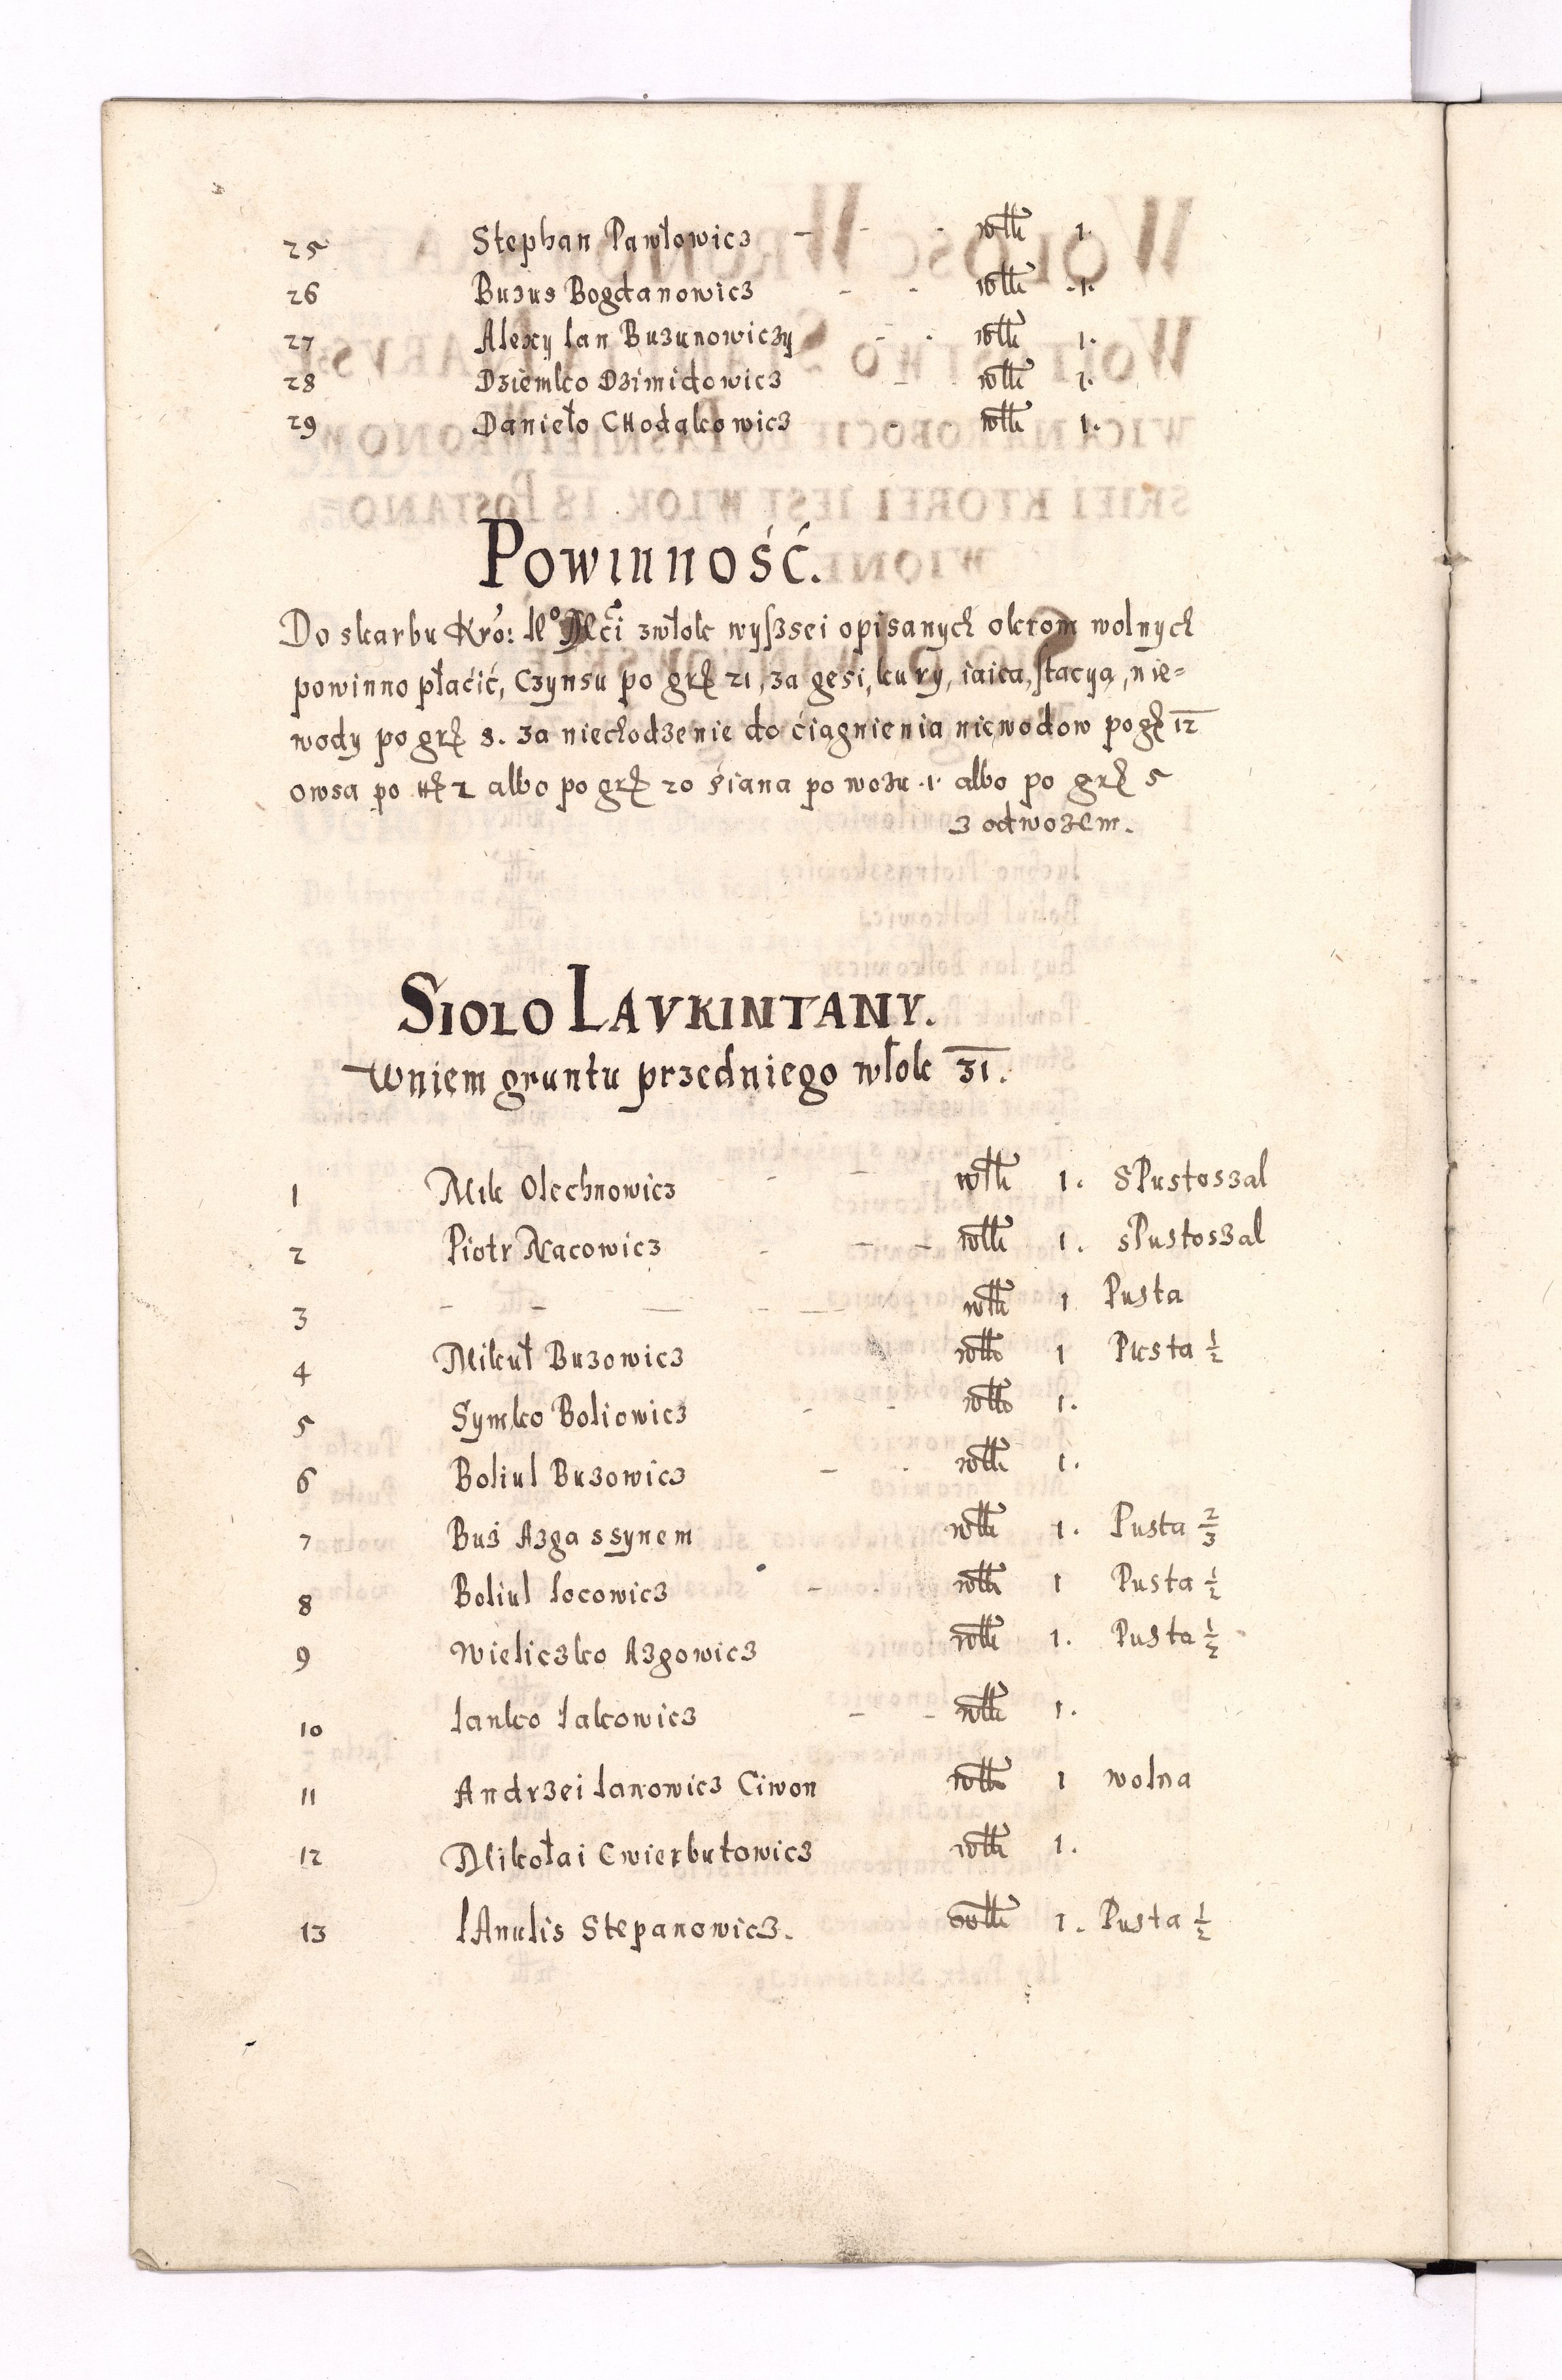 25 Stephan Pawłowicz - - - włk 1.
26 Buzus Bogdanowicz - - włk .1.
27 Alexy Ian Buzunowiczy - . włk 1.
28 Dziemko Dzimidowicz - włk 1.
29 Danieło CHodakowicz - włk 1.
Powinność.
Do skarbu Kro: Mci zwłok wyższei opisanych okrom wolnych
powinno płaćić, Czynsu po grſ 21, za gęsi, kury, iaica, stacyą, nie=
wody po grſ 8. za niechodzenie do ćiągnienia niewodow po grſ 12
owsa po 2 albo po grſ 20 śiana po wozu .1. albo po grſ 5
z odwozem.
SIOLO LAVKINTANY.
Wniem gruntu przedniego włok 31.
1 Mik Olechnowicz - - włk 1. SPustoszal
2 Piotr Nacowicz - - - włk 1. sPustoszal
3 - - - - - włk 1 Pusta
4 Mikuł Buzowicz włk 1 Pusta ½
5 Symko Boliowicz - - włk 1.
6 Boliul Buzowicz - . włk 1.
7 Buś Azga ssynem włk 1. Pusta ⅔
8 Boliul Iocowicz - . włk 1 Pusta ½
9 Wieliczko Azgowicz włk 1. Pusta ½
10 Ianko Iakowicz - - włk 1.
11 Andrzei Ianowicz Ciwon włk 1 wolna
12 Mikołai Cwierbutowicz włk 1.
13 IAnulis Stepanowicz. włk 1. Pusta ½